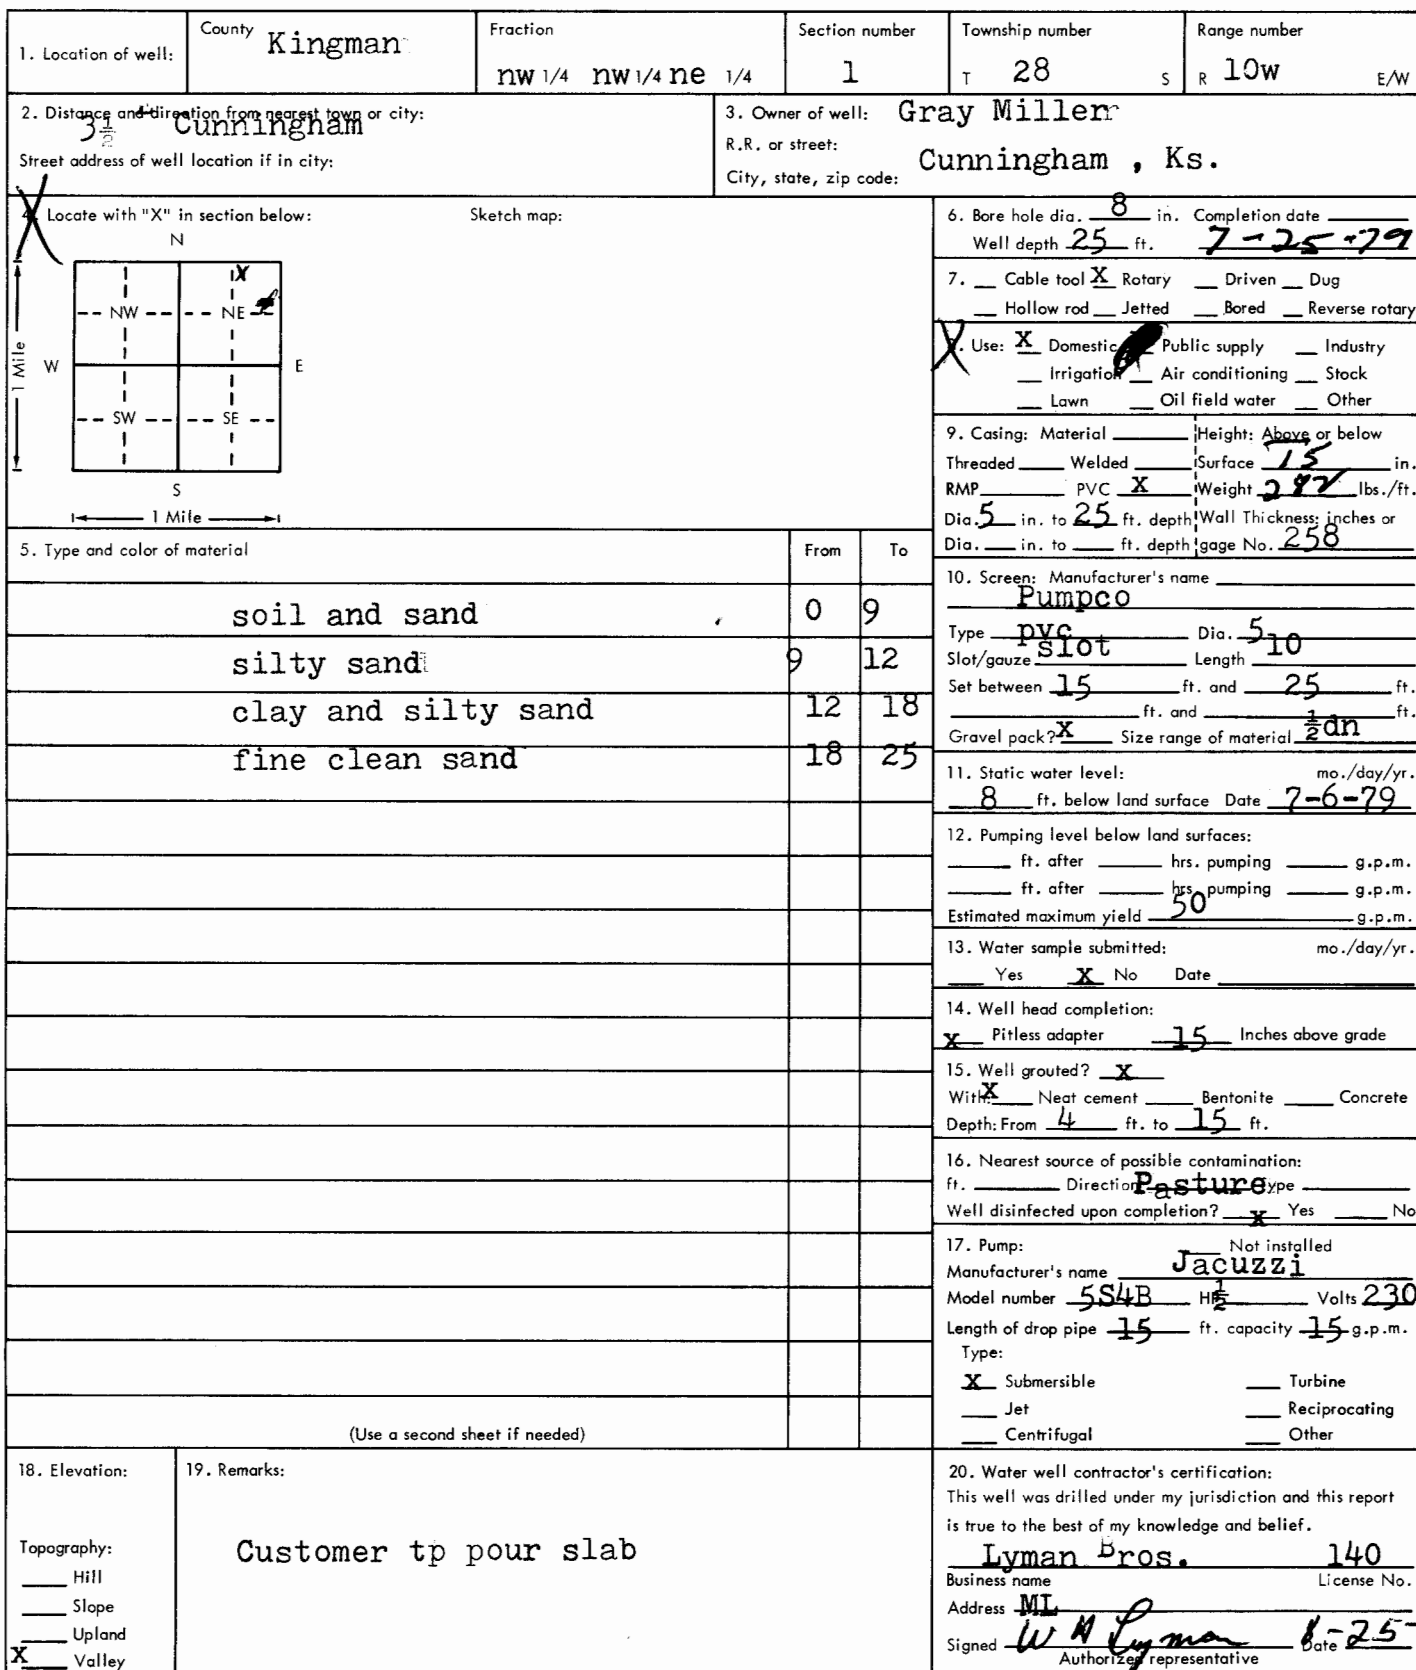 1. Location of well: County Kingman Fraction nw 1/4 nw 1/4 ne 1/4 Section number 1 Township number T 28 S Range number R 10w E/W
2. Distance and direction from nearest town or city: 3 1/2 Cunningham
Street address of well location if in city:
3. Owner of well: Gray Miller
R.R. or street:
City, state, zip code: Cunningham , Ks.
4. Locate with "X" in section below: Sketch map:
N
X
NW NE
W E
1 Mile
SW SE
S
1 Mile
5. Type and color of material From To
soil and sand 0 9
silty sand 9 12
clay and silty sand 12 18
fine clean sand 18 25
(Use a second sheet if needed)
6. Bore hole dia. 8 in. Completion date
Well depth 25 ft. 7-25-79
7. Cable tool X Rotary Driven Dug
Hollow rod Jetted Bored Reverse rotary
Use: X Domestic Public supply Industry
Irrigation Air conditioning Stock
Lawn Oil field water Other
9. Casing: Material Height: Above or below
Threaded Welded Surface 15 in.
RMP PVC X Weight 282 lbs./ft.
Dia. 5 in. to 25 ft. depth Wall Thickness: inches or
Dia. in. to ft. depth gage No. 258
10. Screen: Manufacturer's name
Pumpco
Type pvc Dia. 5
Slot/gauze slot Length 10
Set between 15 ft. and 25 ft.
ft. and ft.
Gravel pack? X Size range of material 1/2 dn
11. Static water level: mo./day/yr.
8 ft. below land surface Date 7-6-79
12. Pumping level below land surfaces:
ft. after hrs. pumping g.p.m.
ft. after hrs. pumping g.p.m.
Estimated maximum yield 50 g.p.m.
13. Water sample submitted: mo./day/yr.
Yes X No Date
14. Well head completion:
X Pitless adapter 15 Inches above grade
15. Well grouted? X
With: X Neat cement Bentonite Concrete
Depth: From 4 ft. to 15 ft.
16. Nearest source of possible contamination:
ft. Direction Pasture Type
Well disinfected upon completion? X Yes No
17. Pump: Not installed
Manufacturer's name Jacuzzi
Model number 5S4B HP 1/2 Volts 230
Length of drop pipe 15 ft. capacity 15 g.p.m.
Type:
X Submersible Turbine
Jet Reciprocating
Centrifugal Other
18. Elevation:
Topography:
Hill
Slope
Upland
X Valley
19. Remarks:
Customer tp pour slab
20. Water well contractor's certification:
This well was drilled under my jurisdiction and this report
is true to the best of my knowledge and belief.
Lyman Bros. 140
Business name License No.
Address ML
Signed W A Lyman Date 8-25-
Authorized representative